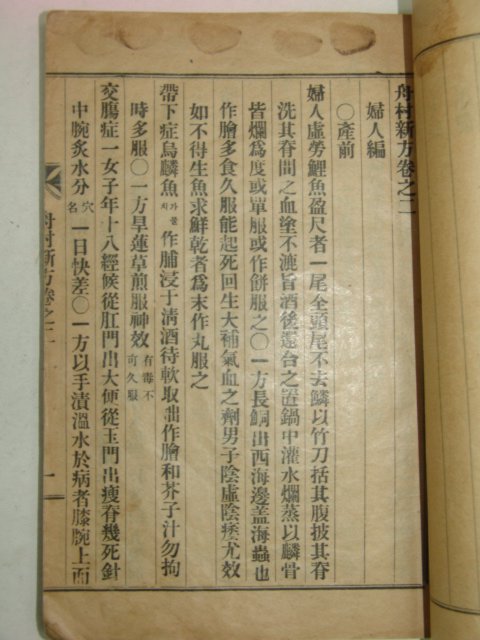 舟村新方卷之二
婦人編
○產前
婦人虛勞鯉魚盈尺者一尾全頭尾不去鱗以竹刀括其腹披其脊
洗其脊間之血塗不漉旨酒後還合之置鍋中灌水爛蒸以鱗骨
皆爛爲度或單服或作餠服之○一方長鮦出西海邊盖海蟲也
作膾多食久服能起死回生大補氣血之劑男子陰虛陰痿尤效
如不得生魚求鮮乾者爲末作丸服之
帶下症烏鱗魚가물치作脯浸于淸酒待軟取出作膾和芥子汁勿拘
時多服○一方旱蓮草煎服神效有毒不可久服
交膓症一女子年十八經候從肛門出大便從玉門出瘦脊幾死針
中腕炙水分穴名一日快差○一方以手漬溫水於病者膝腕上面
舟村新方卷之二
一